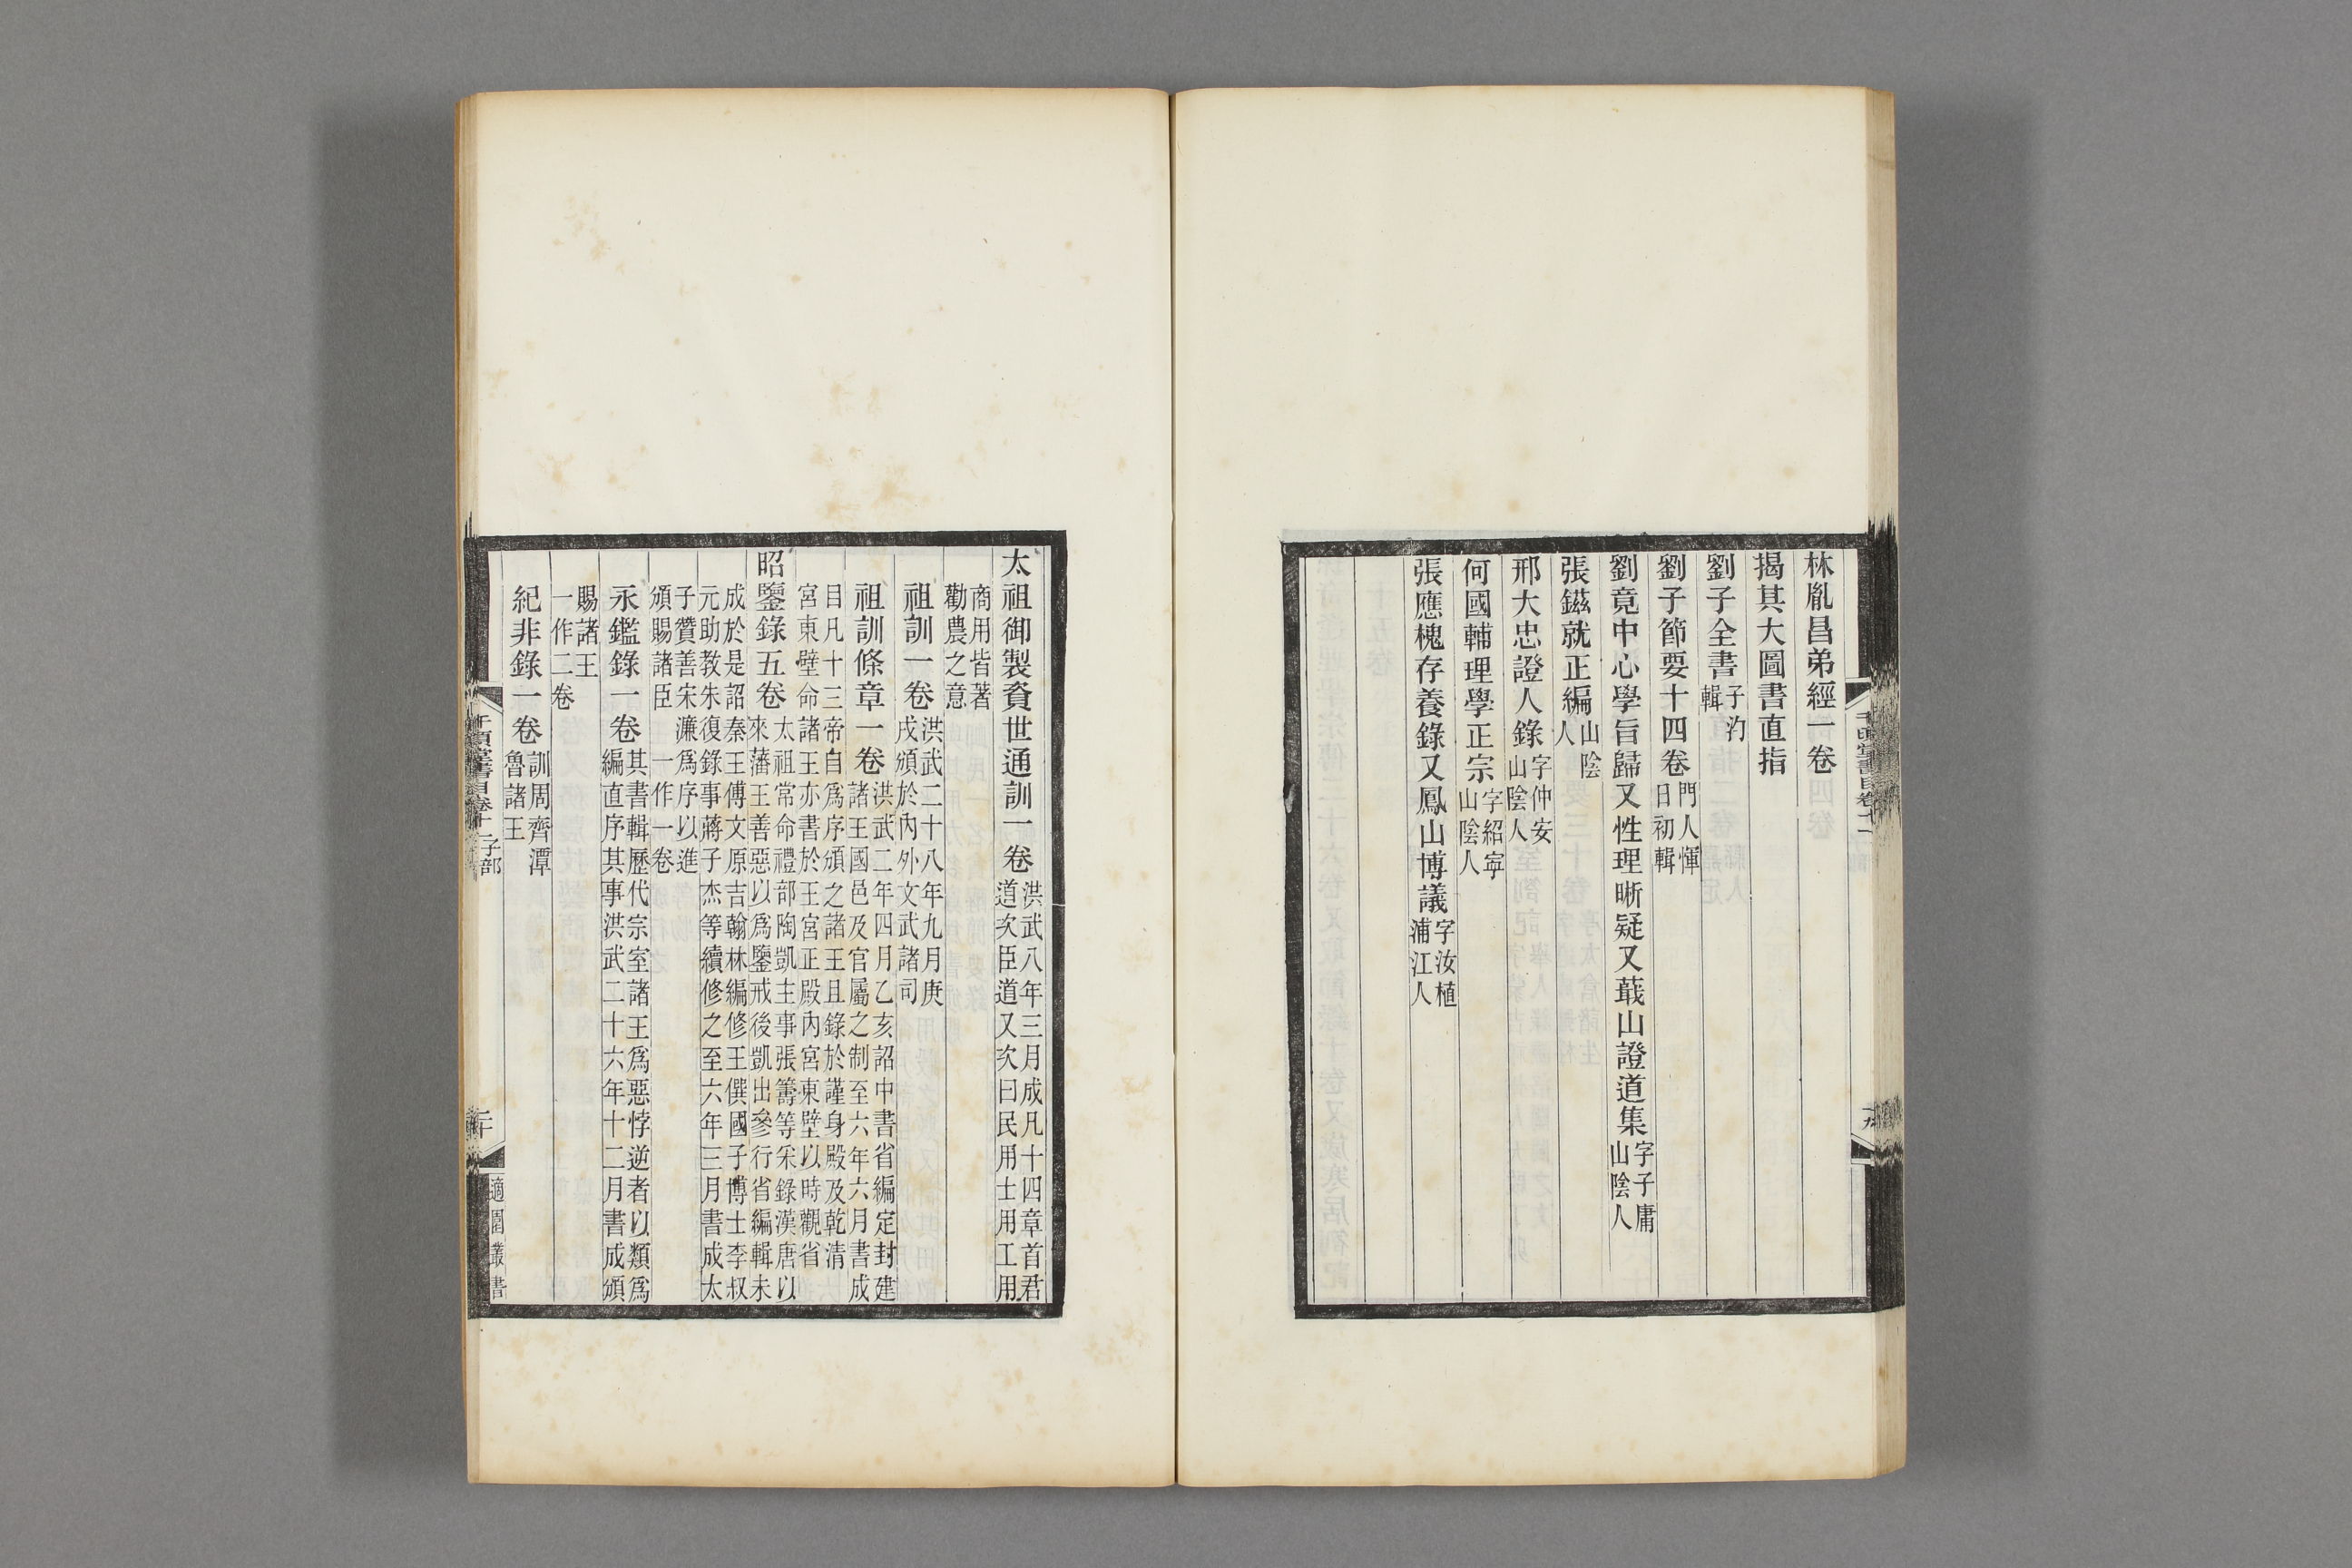 林胤昌弟經一卷
揭其大圖書直指
劉子全書子汋輯
劉子節要十四卷門人惲日初輯
劉竟中心學旨歸又性理晰疑又蕺山證道集字子庸山陰人
張鎡就正編山陰人
邢大忠證人錄字仲安山陰人
何國輔理學正宗字紹寧山陰人
張應槐存養錄又鳳山博議字汝植浦江人
太祖御製資世通訓一卷洪武八年三月成凡十四章首君道次臣道又次曰民用士用工用
商用皆著勸農之意
祖訓一卷洪武二十八年九月庚戌頒於內外文武諸司
祖訓條章一卷洪武二年四月乙亥詔中書省編定封建諸王國邑及官屬之制至六年六月書成
目凡十三帝自為序頒之諸王且錄於謹身殿及乾清宮東壁命諸王亦書於王宮正殿內宮東壁以時觀省
昭鑒錄五卷太祖常命禮部陶凱主事張籌等采錄漢唐以來藩王善惡以為鑒戒後凱出參行省編輯未
成於是詔秦王傅文原吉翰林編修王僎國子博士李叔元助教朱復錄事蔣子杰等續修之至六年三月書成太
子贊善宋濂為序以進頒賜諸臣一作一卷
永鑑錄一卷其書輯歷代宗室諸王為惡悖逆者以類為編直序其事洪武二十六年十二月書成頒
賜諸王一作二卷
紀非錄一卷訓周齊潭魯諸王
千頃堂書目卷十一子部
二十
適園叢書